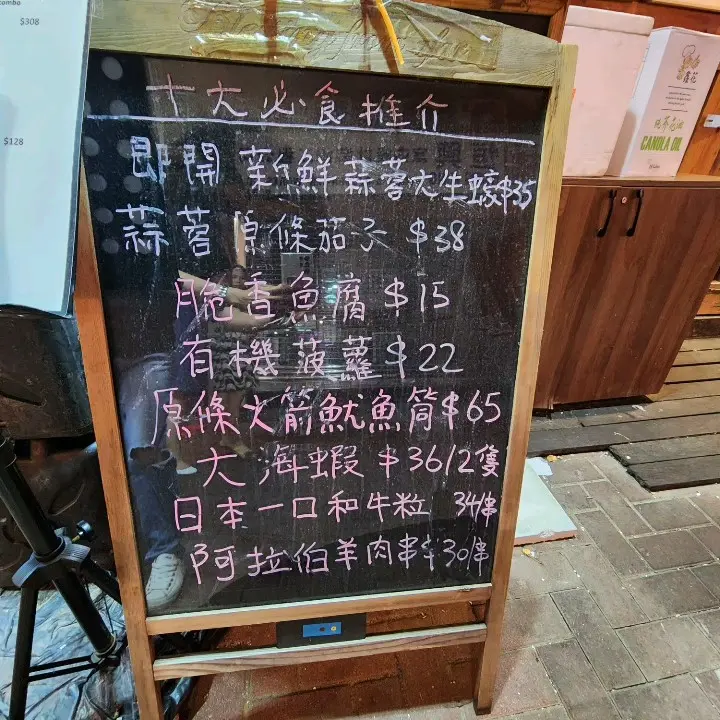 combo
$308
$128
十大必食推介
即開 新鮮蒜蓉大生蠔$35
蒜蓉原條茄子 $38
脆香魚腐 $15
有機菠蘿 $22
原條火箭魷魚筒$65
大海蝦 $36/2隻
日本一口和牛粒 34/串
阿拉伯羊肉串$30/串
CANOLA OIL